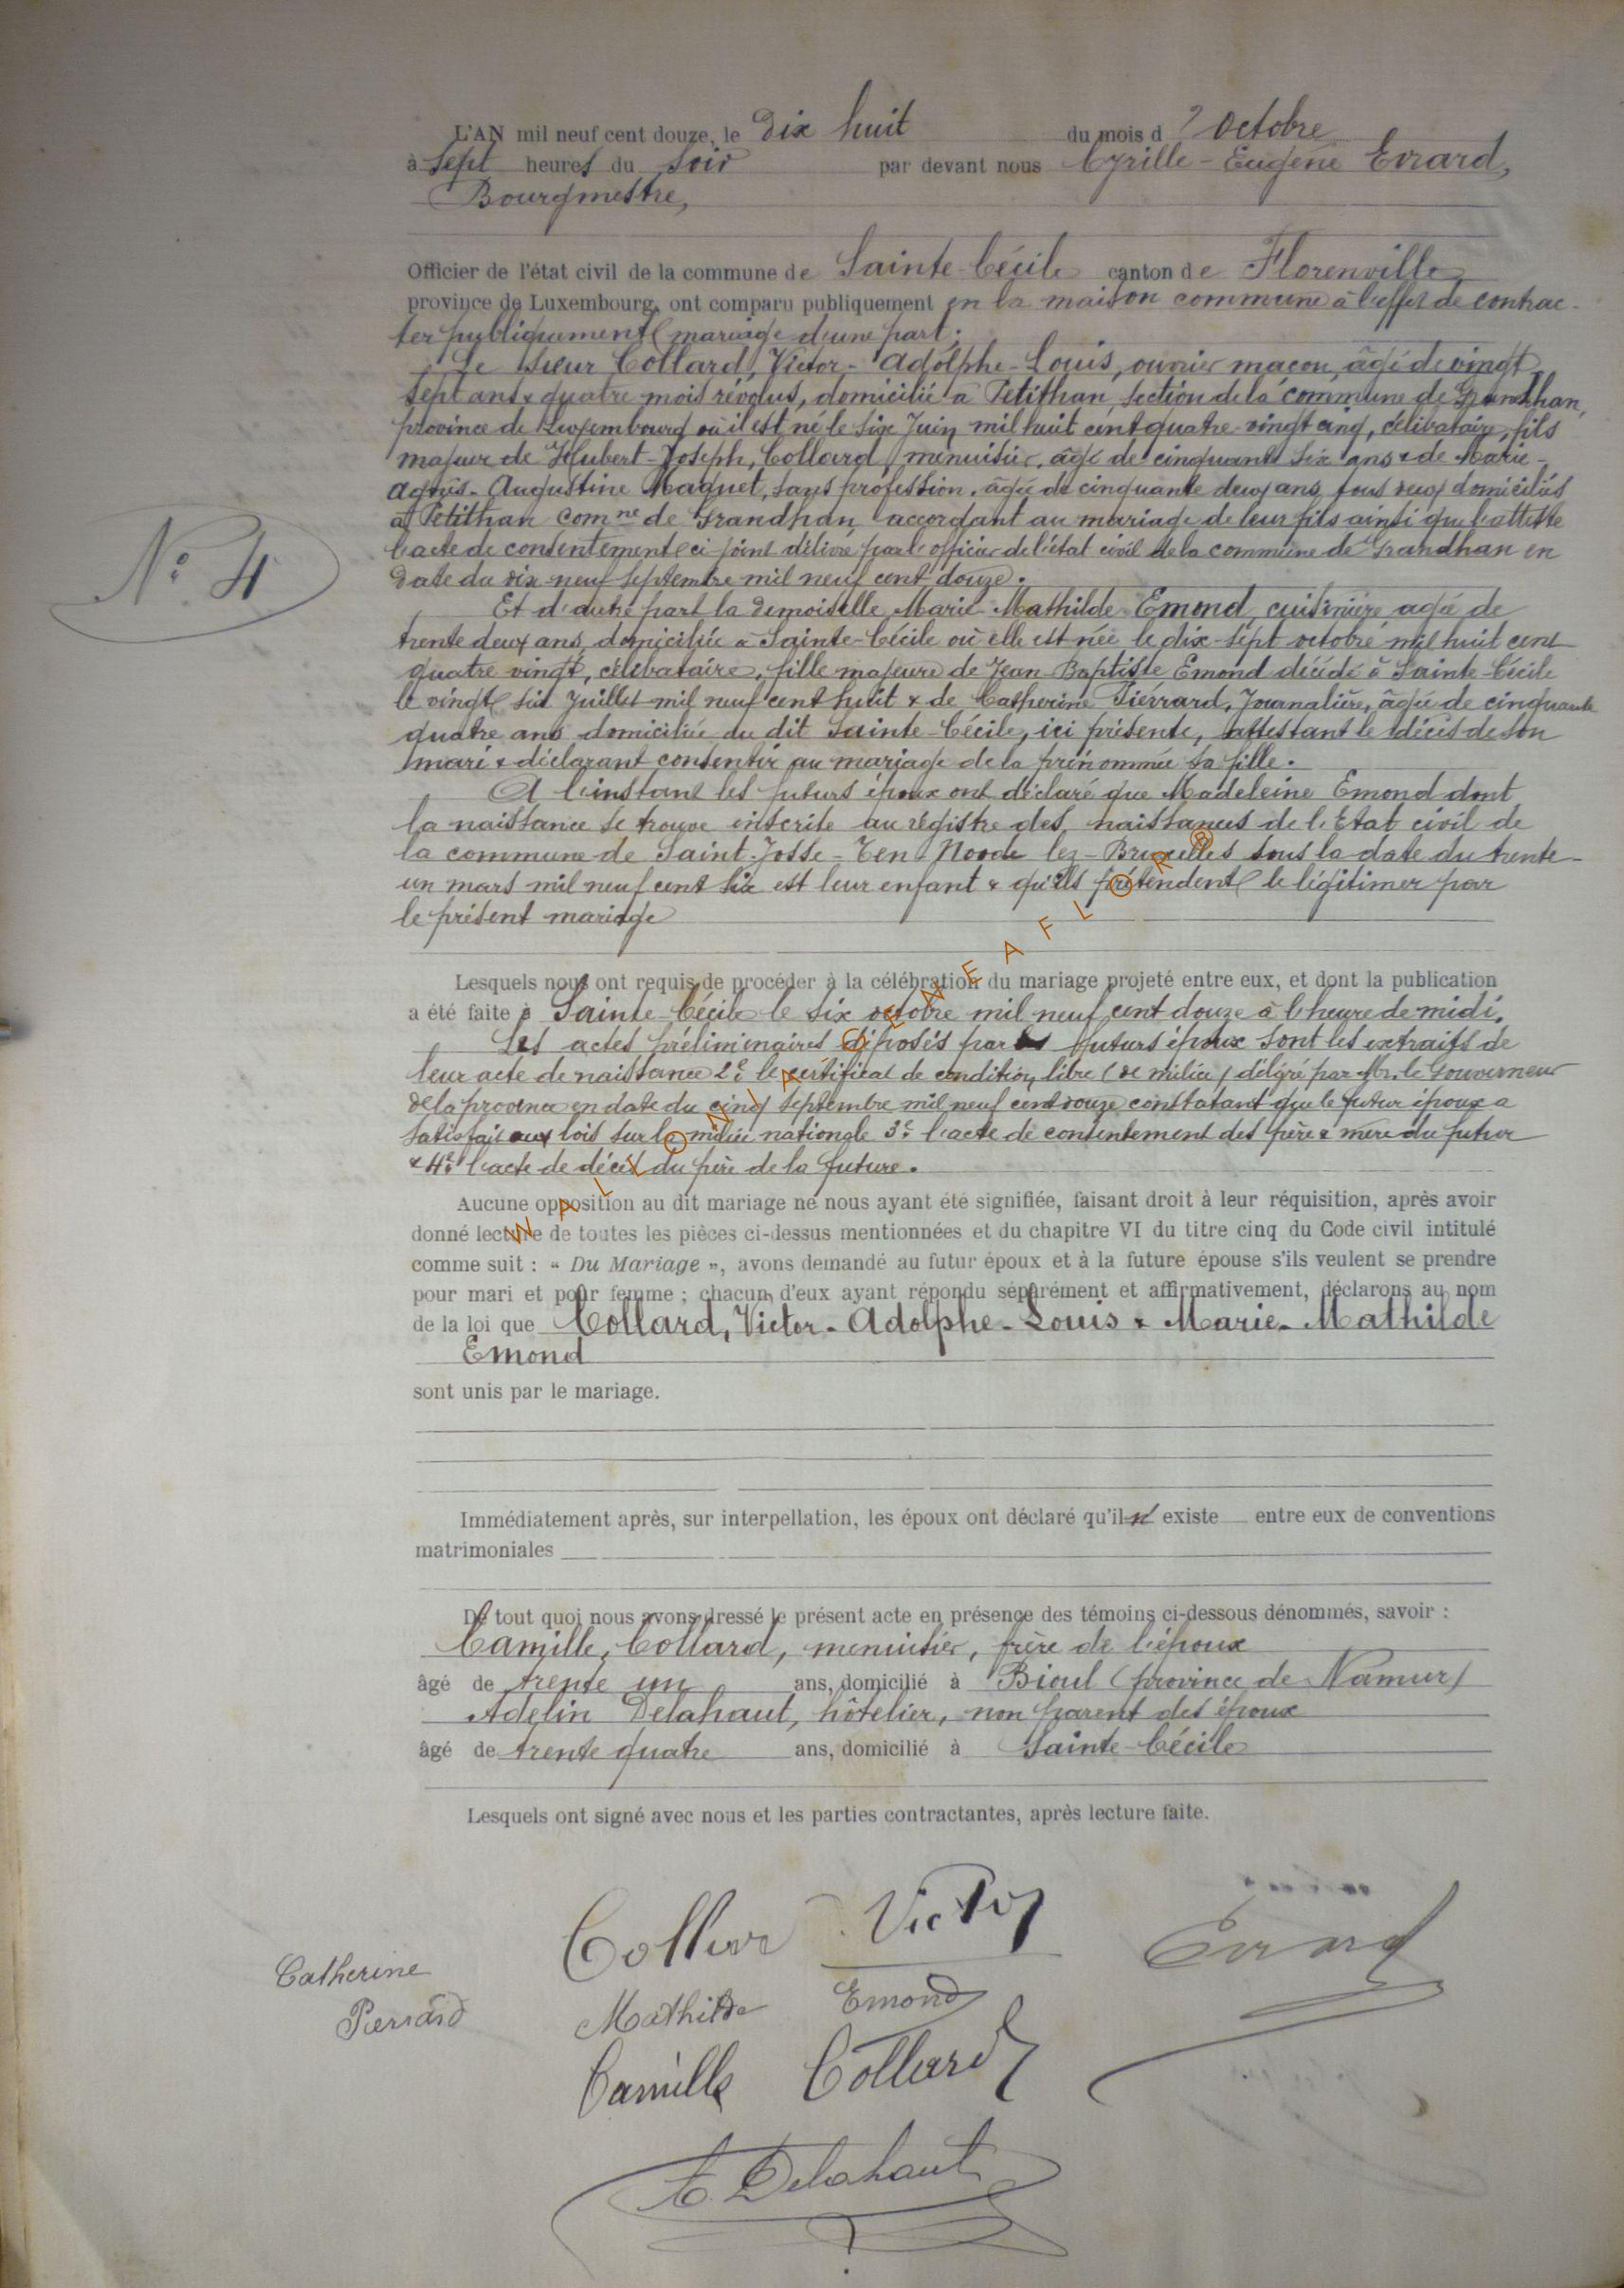 L'AN mil neuf cent douze, le Dix huit du mois d' Octobre
à sept heures du soir par devant nous Cyrille-Eugène Evrard,
Bourgmestre,
Officier de l'état civil de la commune de Sainte-Cécile canton de Florenville
province de Luxembourg, ont comparu publiquement en la maison commune à l'effet de contrac-
ter publiquement mariage d'une part:
Le sieur Collard, Victor-Adolphe-Louis, ouvrier maçon, âgé de vingt
sept ans & quatre mois révolus, domicilié à Petithan, section de la commune de Grandhan,
province de Luxembourg où il est né le six Juin mil huit cent quatre-vingt cinq, célibataire, fils
majeur de Hubert-Joseph, Collard, menuisier, âgé de cinquante six ans & de Marie-
Agnès-Augustine Maquet, sans profession, âgée de cinquante deux ans, tous deux domiciliés
à Petithan com.ne de Grandhan accordant au mariage de leur fils ainsi que l'atteste
l'acte de consentement ci-joint délivré par l'officier de l'état civil de la commune de Grandhan en
date du dix-neuf septembre mil neuf cent douze.
N° 4
Et d'autre part la demoiselle Marie-Mathilde Emond, cuisinière agée de
trente deux ans, domiciliée à Sainte-Cécile où elle est née le dix-sept octobre mil huit cent
quatre vingt, célibataire, fille majeure de Jean-Baptiste Emond décédé à Sainte-Cécile
le vingt six Juillet mil neuf cent huit & de Catherine Piérrard, Journalière, âgée de cinquante
quatre ans domiciliée du dit Sainte-Cécile, ici présente, attestant le décès de son
mari & déclarant consentir au mariage de la prénommée sa fille.
A l'instant les futurs époux ont déclaré que Madeleine Emond dont
la naissance se trouve inscrite au régistre des naissances de l'Etat civil de
la commune de Saint-Josse-Ten-Noode lez-Bruxelles sous la date du trente-
un mars mil neuf cent six est leur enfant & qu'ils prétendent le légitimer par
le présent mariage
Lesquels nous ont requis de procéder à la célébration du mariage projeté entre eux, et dont la publication
a été faite à Sainte-Cécile le six octobre mil neuf cent douze à l'heure de midi.
Les actes préliminaires déposés par les futurs époux sont les extraits de
leur acte de naissance 2° le certificat de condition libre (de milice) délivré par Mr. le Gouverneur
de la province en date du cinq septembre mil neuf cent douze constatant que le futur époux a
satisfait aux lois sur la milice nationale 3° l'acte de consentement des père & mère du futur
& 4° l'acte de décès du père de la future.
Aucune opposition au dit mariage ne nous ayant été signifiée, faisant droit à leur réquisition, après avoir
donné lecture de toutes les pièces ci-dessus mentionnées et du chapitre VI du titre cinq du Code civil intitulé
comme suit : « Du Mariage », avons demandé au futur époux et à la future épouse s'ils veulent se prendre
pour mari et pour femme ; chacun d'eux ayant répondu séparément et affirmativement, déclarons au nom
de la loi que Collard, Victor-Adolphe-Louis & Marie-Mathilde
Emond
sont unis par le mariage.
Immédiatement après, sur interpellation, les époux ont déclaré qu'il n' existe entre eux de conventions
matrimoniales
De tout quoi nous avons dressé le présent acte en présence des témoins ci-dessous dénommés, savoir :
Camille, Collard, menuisier, frère de l'époux
âgé de trente un ans, domicilié à Bioul (province de Namur)
Adelin Delahaut, hôtelier, non parent des époux
âgé de trente quatre ans, domicilié à Sainte-Cécile
Lesquels ont signé avec nous et les parties contractantes, après lecture faite.
Collard Victor
Evrard
Catherine
Pierrard
Mathilde Emond
Camille Collard
A. Delahaut
WALLONIA GENEAFLOR ®